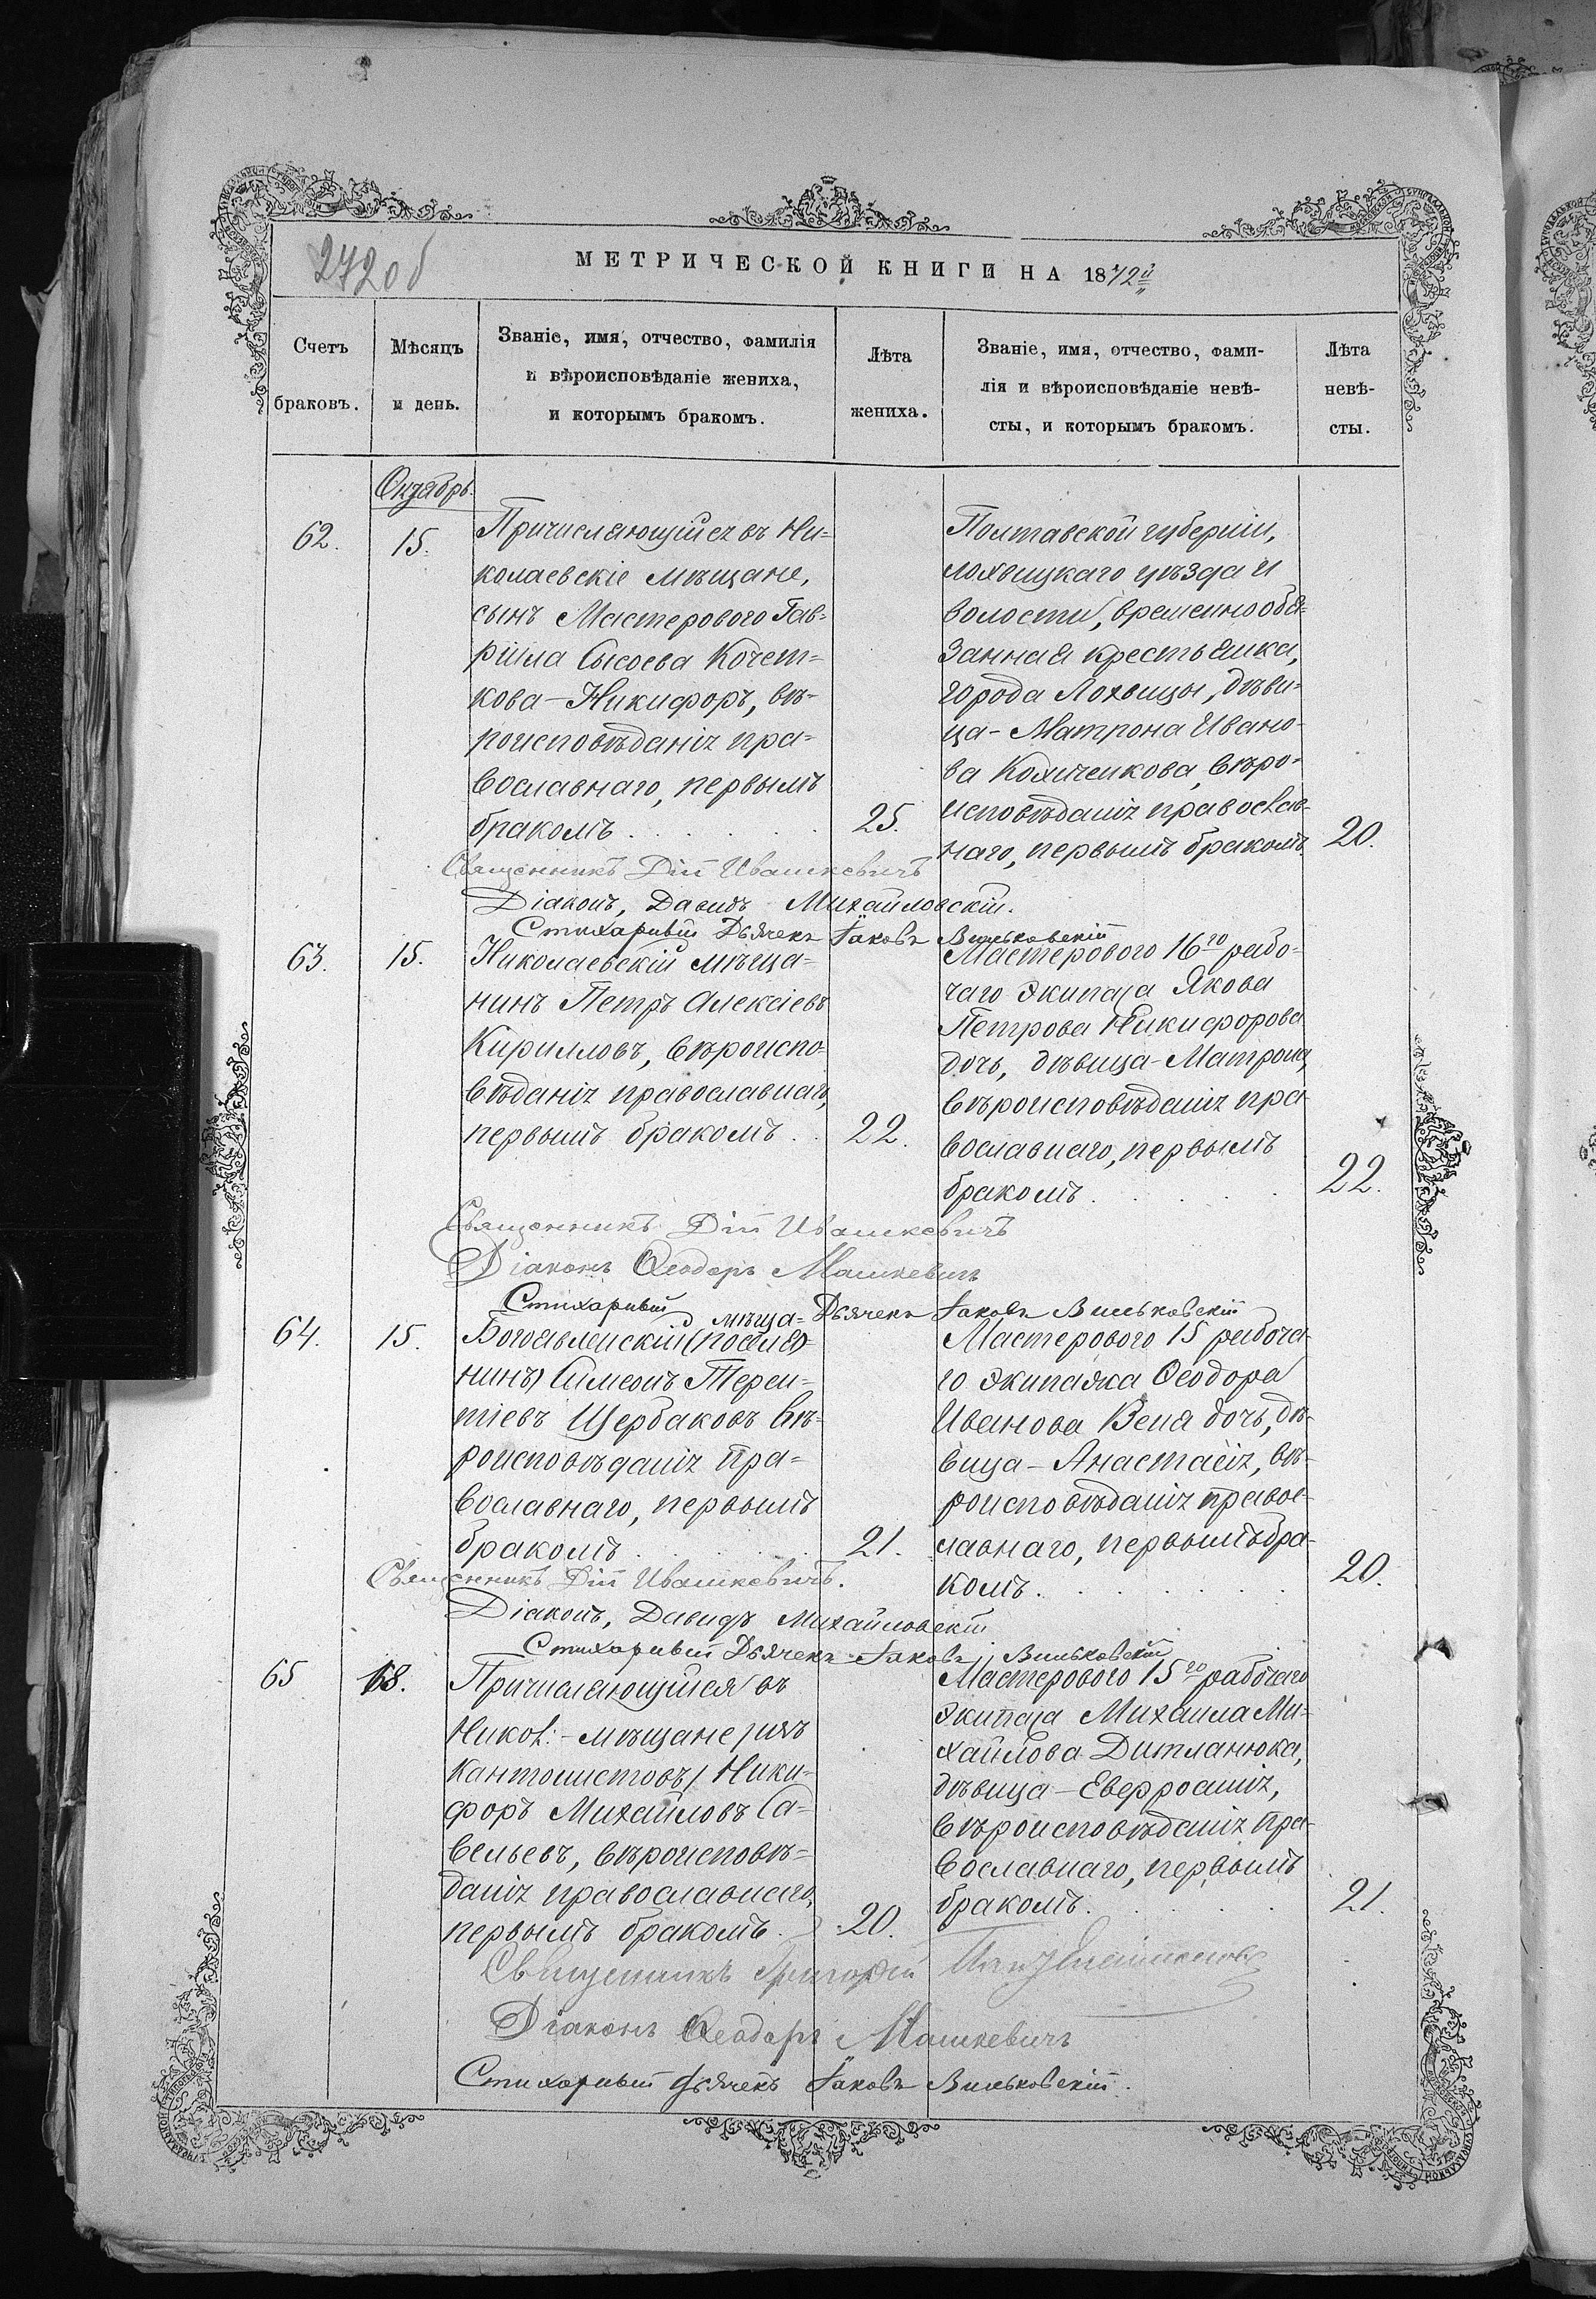 272об
МЕТРИЧЕСКОЙ КНИГИ НА 1872й
Счетъ
браковъ.
Мѣсяцъ
и день.
Званіе, имя, отчество, фамилія
и вѣроисповѣданіе жениха,
и которымъ бракомъ.
Лѣта
жениха.
Званіе, имя, отчество, фами-
лія и вѣроисповѣданіе невѣ-
сты, и которымъ бракомъ.
Лѣта
невѣ-
сты.
Октябрь.
62.
15.
Причисляющійся въ Ни-
колаевскіе мѣщане,
сынъ Мастероваго Гав-
ріила Сысоева Кочет-
кова - Никифоръ, вѣ-
роисповѣданія пра-
вославнаго, первымъ
бракомъ
25.
Полтавской губерніи,
лохвицкаго уѣзда и
волости, временно обя-
занная крестьянка,
города Лохвицы, дѣви-
ца - Матрона Ивано-
ва, вѣро-
исповѣданія православ-
наго, первымъ бракомъ
20.
Священникъ Дій Ивашкевичъ
Діаконъ, Давидъ Михайловскій.
Стихарный Дьячекъ Іаковъ Виньковскій
63.
15.
Николаевскій мѣща-
нинъ Петръ Алексіевъ
Кирилловъ, вѣроиспо-
вѣданія православнаго,
первымъ бракомъ
22.
Мастероваго 16го рабо-
чаго экипажа Якова
Петрова Никифорова
дочь, дѣвица - Матрона,
вѣроисповѣданія пра-
вославнаго, первымъ
бракомъ
22.
Священникъ Дій Ивашкевичъ
Діаконъ Ѳеодоръ Машкевичъ
Стихарный Дьячекъ Іаковъ Виньковскій
64.
15.
мѣща-
Богоявленскій (поселя-
нинъ) Симеонъ Терен-
тіевъ Щербаковъ вѣ-
роисповѣданія пра-
вославнаго, первымъ
бракомъ
21.
Мастероваго 15 рабоча-
го экипажа Ѳеодора
Иванова дочь, дѣ-
вица - Анастасія, вѣ-
роисповѣданія правос-
лавнаго, первымъ бра-
комъ
20.
Священникъ Дій Ивашкевичъ.
Діаконъ, Давидъ Михайловскій
Стихарный Дьячекъ Іаковъ Виньковскій
65
18.
Причисляющійся въ
Никол: - мѣщане /изъ
кантонистовъ/ Ники-
форъ Михайловъ Са-
вельевъ, вѣроисповѣ-
данія православнаго,
первымъ бракомъ.
20.
Мастероваго 15го рабочаго
экипажа Михаила Ми-
хайлова Дитланюка,
дѣвица - Евфросинія,
вѣроисповѣданія пра-
вославнаго, первымъ
бракомъ
21.
Священникъ Григорій
Діаконъ Ѳеодоръ Машкевичъ
Стихарный дьячекъ Іаковъ Виньковскій.